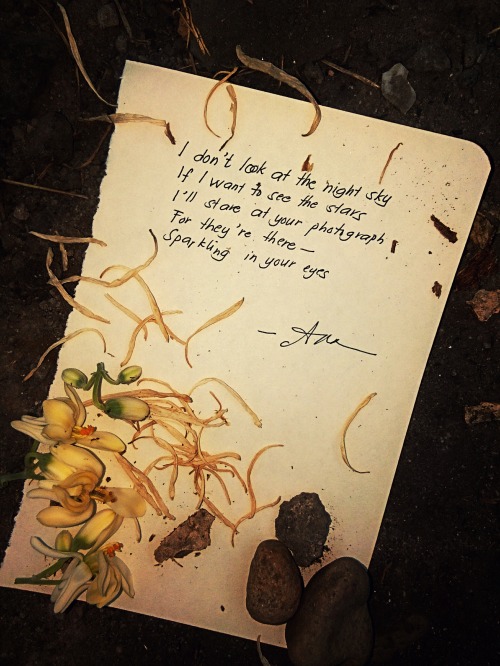 I don't look at the night sky
If I want to see the stars
I'll stare at your photograph
For they're there—
Sparkling in your eyes
- Ada